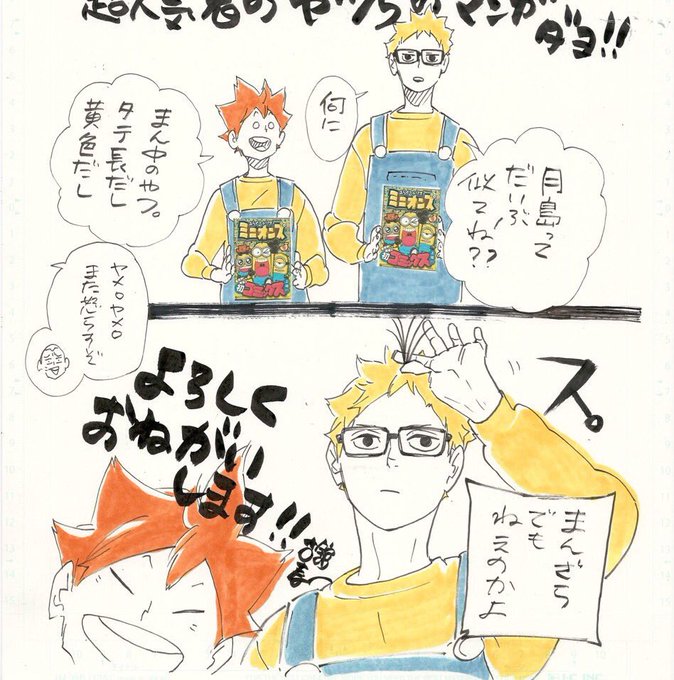 超人気者のヤツらのマンガ
ダヨ!!
何に
まん中のやつ。
タテ長だし
黄色だし
月島って
だいぶ
似てね??
ミニオンズ
コミックス
ミニオンズ
コミックス
ヤメロヤメロ
また怒らすぞ
よろしく
おねがい
します!!
ス。
まんざら
でも
ねえのかよ